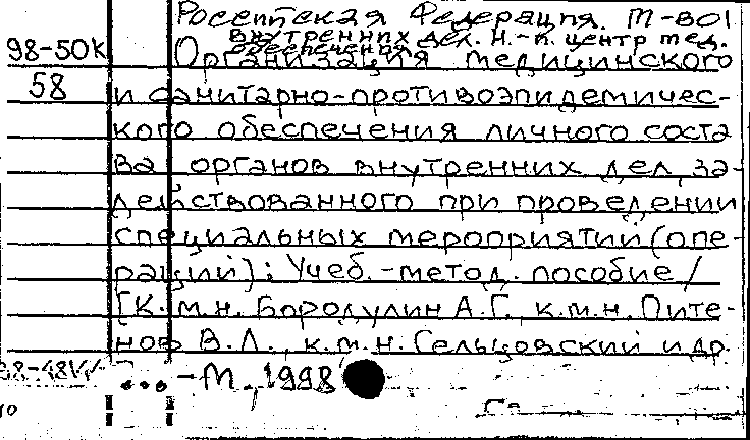 Российская Федерация. М-во
внутренних дел. Н.-п. центр мед.
обеспечения
98-50К Организация медицинского
58 и санитарно-противоэпидемичес-
кого обеспечения личного соста
ва органов внутренних дел, за-
действованного при проведении
специальных мероприятий (опе-
раций): Учеб.-метод. пособие /
[К.м.н. Бородулин А.Г., к.м.н. Пите-
нов В.Л., к.м.н. Гельцовский и др.
... -М., 1998